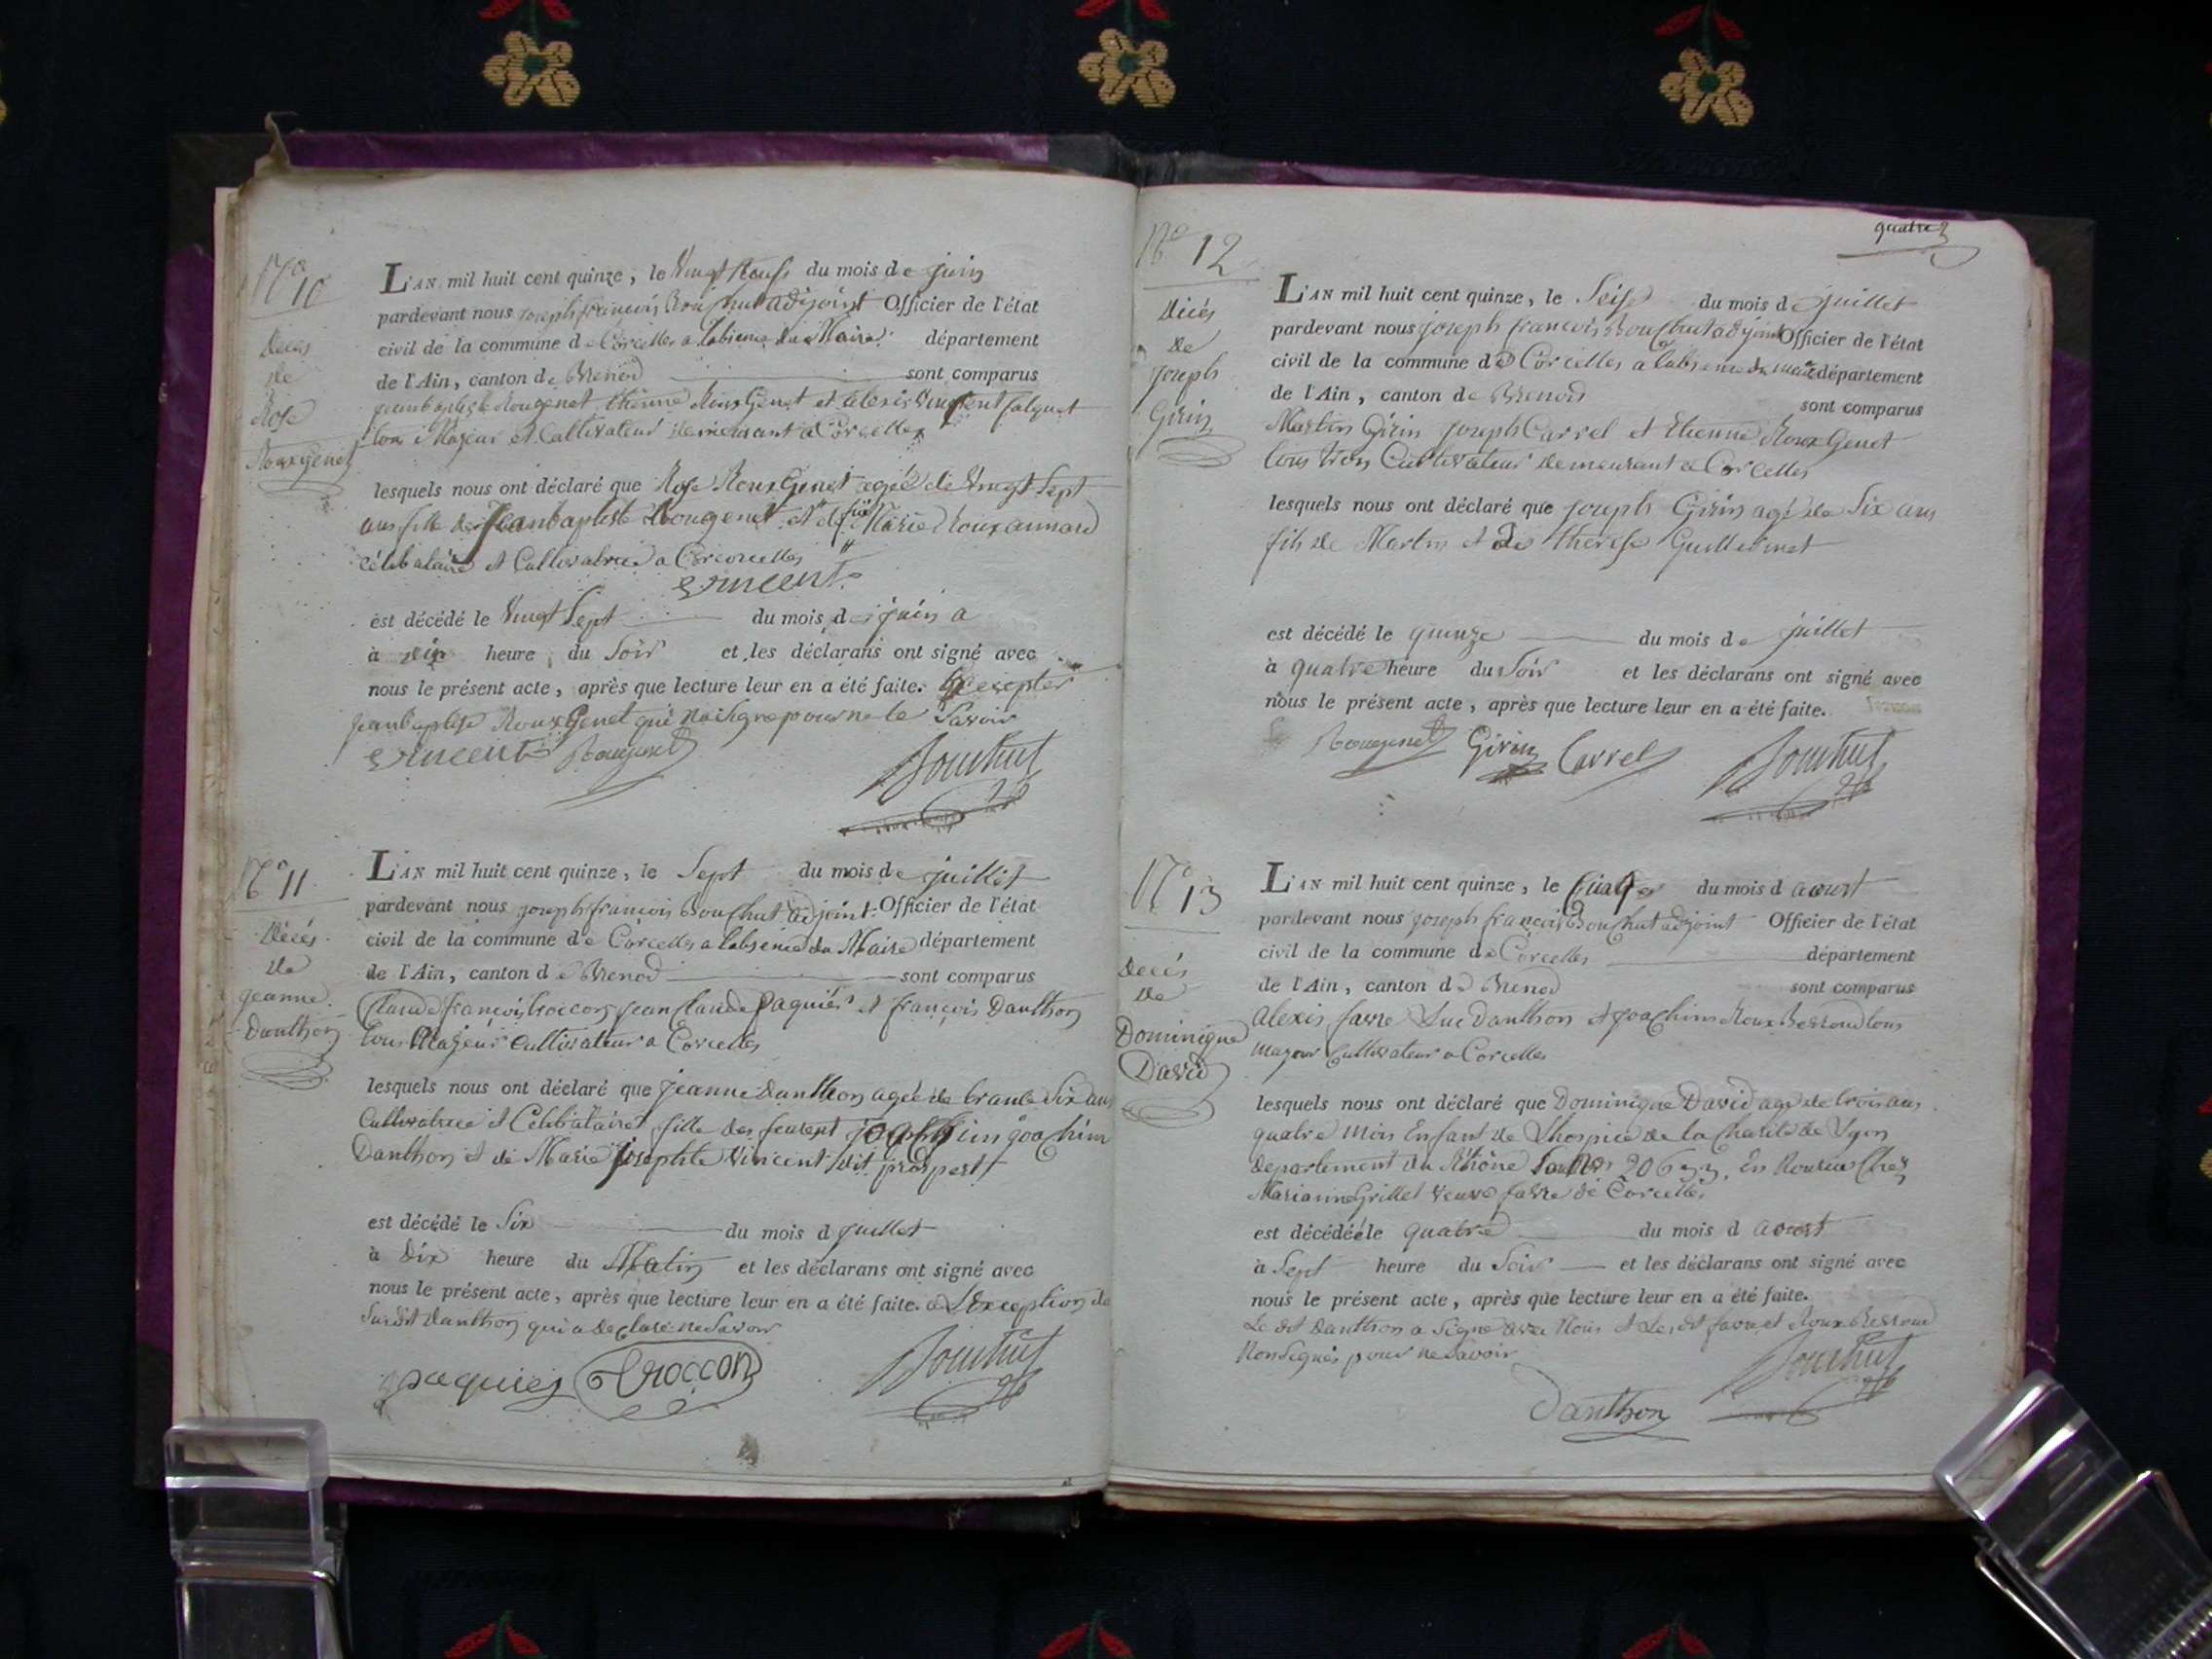 N° 10
Décès
de
Rose
Rouxgenet
L'AN mil huit cent quinze, le Vingt neuf du mois de juin
pardevant nous joseph françois Bouchut adjoint Officier de l'état
civil de la commune de Corcelles a labsence du Maire département
de l'Ain, canton de Brenod sont comparus
jeanbaptiste Rougenet Etienne Roux Genet et alexis Vincent falquet
tous Majeur et Cultivateur demeurant a Corcelles
lesquels nous ont déclaré que Rose Roux Genet agée de Vingt Sept
ans fille de Jeanbaptiste Rougenet et de Marie Roux annard
célibataire et Cultivatrice a Corcorcelles
vincent
est décédé le Vingt Sept du mois de juin a
à dix heure du Soir et les déclarans ont signé avec
nous le présent acte, après que lecture leur en a été faite. Excepter
jeanbaptise Roux Genet qui na Signe pour ne le Savoir
vincent Rougenet Bouchut
N° 11
Décés
de
jeanne
Danthon
L'AN mil huit cent quinze, le Sept du mois de juillet
pardevant nous joseph francois Bouchut adjoint Officier de l'état
civil de la commune de Corcelles a labsence du Maire département
de l'Ain, canton de Brenod sont comparus
Claude françois troccon jean Claude paquiés et françois Danthon
tous Majeur Cultivateur a Corcelles
lesquels nous ont déclaré que jeanne Danthon agée de trante Six ans
Cultivatrice et Celibataire fille des goachim
Danthon et de Marie josephte Vincent dit prospert
est décédé le Six du mois d juillet
à Dix heure du Matin et les déclarans ont signé avec
nous le présent acte, après que lecture leur en a été faite. a LException de
Susdit Danthon qui a declaré ne Savoir
paquiés troccon Bouchut
quatre
N° 12
Décés
de
joseph
Girin
L'AN mil huit cent quinze, le Seise du mois de juillet
pardevant nous joseph francois Bouchut adjoint Officier de l'état
civil de la commune de Corcelles a labsence du maire département
de l'Ain, canton de Brenod sont comparus
Martin Girin joseph Carrel et Etienne Roux Genet
tous trois Cultivateur demeurant a Corcelles
lesquels nous ont déclaré que joseph Girin agé de Six ans
fils de Martin et de therese Guillermet
est décédé le quinze du mois de juillet
à quatre heure du Soir et les déclarans ont signé avec
nous le présent acte, après que lecture leur en a été faite.
Rougenet Girin Carrel Bouchut
N° 13
Decés
de
Dominique
David
L'AN mil huit cent quinze, le du mois d aoust
pardevant nous joseph françois Bouchut adjoint Officier de l'état
civil de la commune de Corcelles département
de l'Ain, canton de Brenod sont comparus
alexis favre Luc Danthon et joachim Roux Bessond tous
majeur Cultivateur a Corcelles
lesquels nous ont déclaré que Dominique David agé de trois ans
quatre mois Enfant de Lhospice de la Charité de Lyon
departement du Rhône En Chez
Marianne Grillet veuve favre de Corcelles
est décédé le quatre du mois d aoust
à Sept heure du Soir et les déclarans ont signé avec
nous le présent acte, après que lecture leur en a été faite.
Le dit Danthon a Signe avec Nous et Les dit favre et Roux Bessond
Non Signés pour ne Savoir
Danthon Bouchut